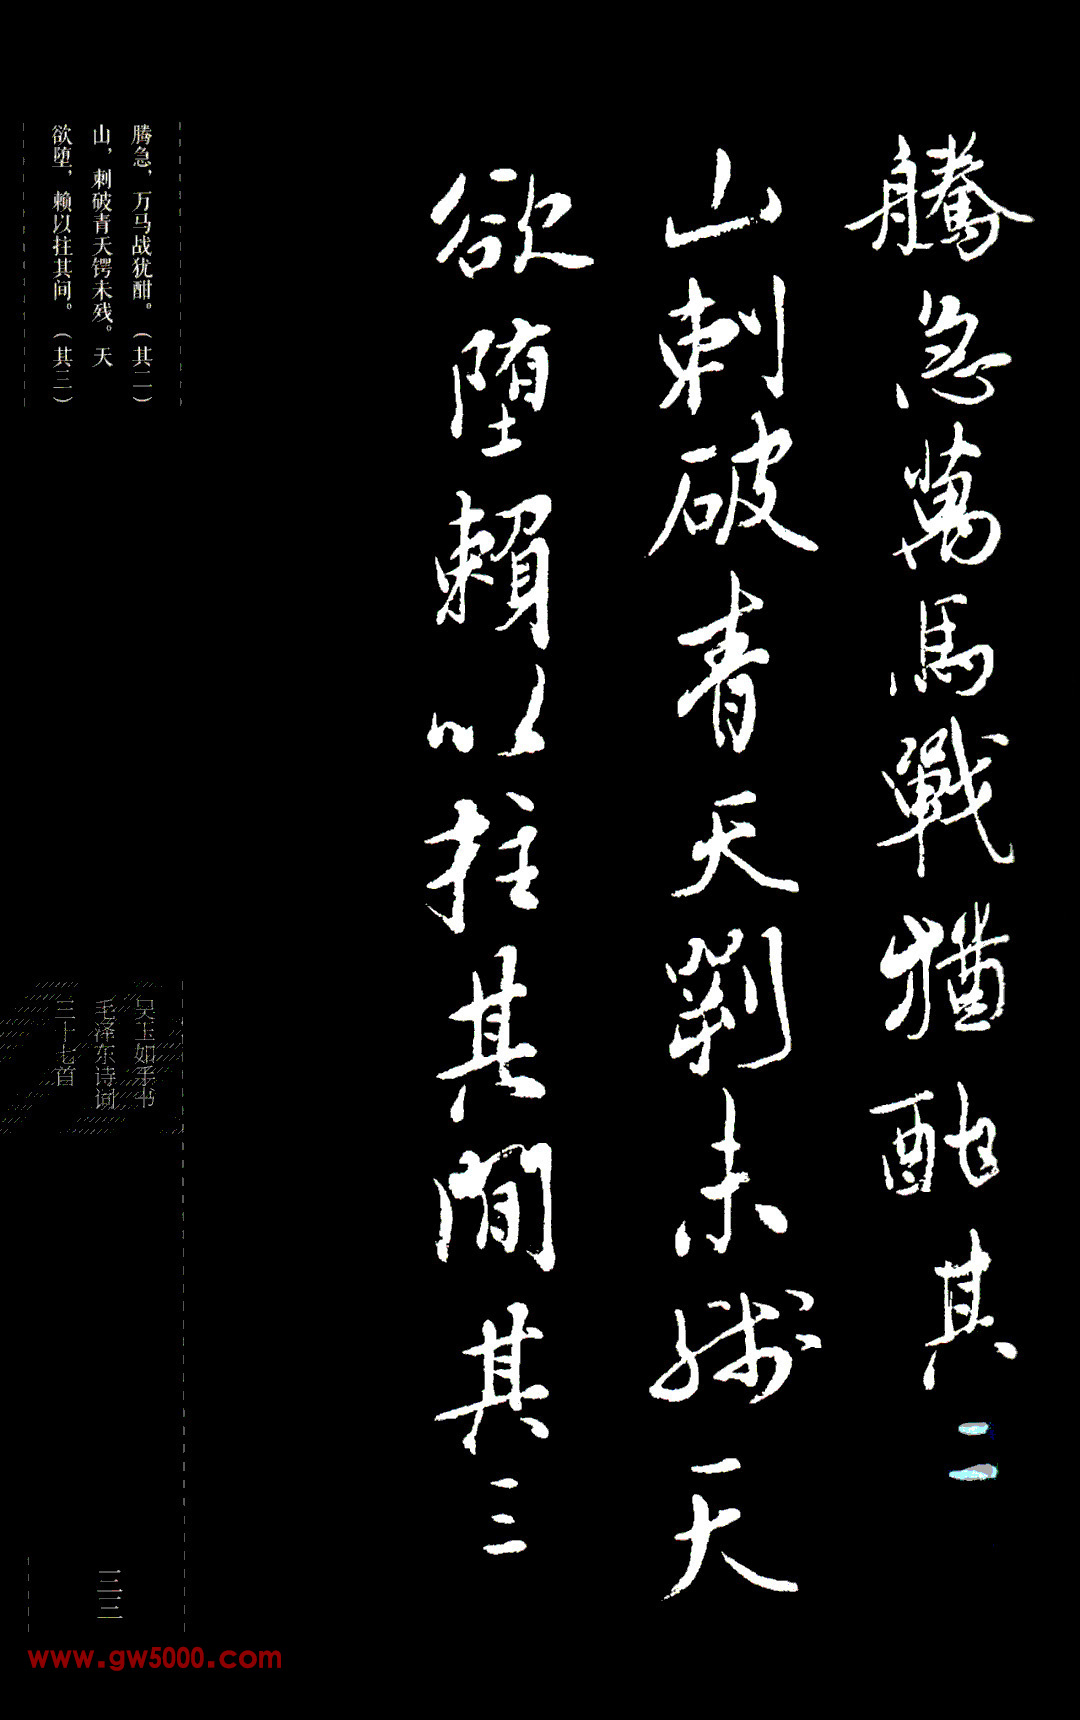 騰急萬馬戰猶酣其二
山刺破青天剽未殘天
欲堕賴以拄其間其三
腾急，万马战犹酣。（其二）
山，刺破青天锷未残。天
欲堕，赖以拄其间。（其三）
吴玉如手书
毛泽东诗词
三十七首
三三
www.gw5000.com